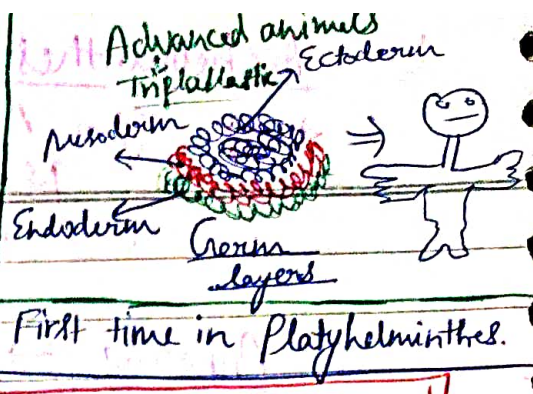 Advanced animals
Triplallastic
Ectoderm
Mesoderm
Endoderm
Germ
layers
First time in Platyhelminthes.